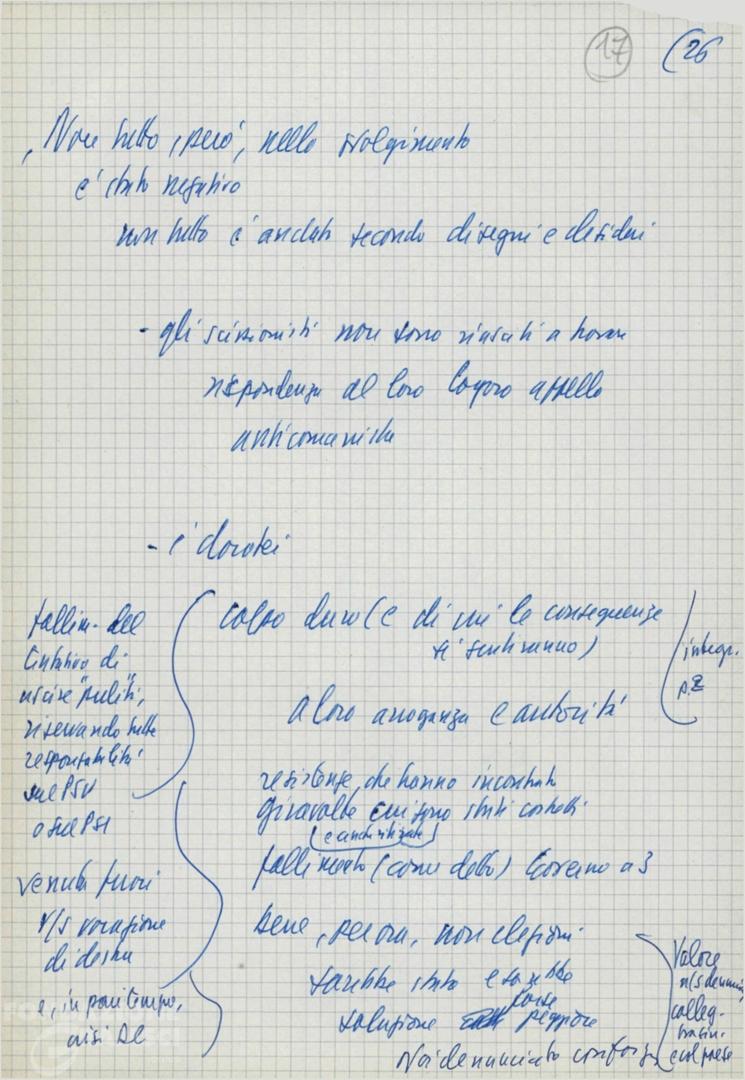 17 (26
Non tutto, però, nello svolgimento
e' stato negativo
non tutto è andato secondo disegni e desideri
- gli scissionisti non sono riusciti a trovare
rispondenza al loro logoro appello
anticomunista
- i dorotei
colpo duro (e di cui le conseguenze
si sentiranno)
a loro arroganza e autorità
integr.
p. 2
fallim. del
tentativo di
uscire "puliti",
riservando tutte
responsabilità
sul PSU
o sul PSI
resistenze che hanno incontrato
giravolte cui sono stati costretti
(e anche
fallimento (come detto) Governo a 3
venuta fuori
vocazione
di destra
e, in pari tempo,
crisi DC
bene, per ora, non elezioni
sarebbe stato e sarebbe
forse
soluzione peggiore
Noi denunciato con forza
Valore
ns denuncia,
colleg.
e col paese